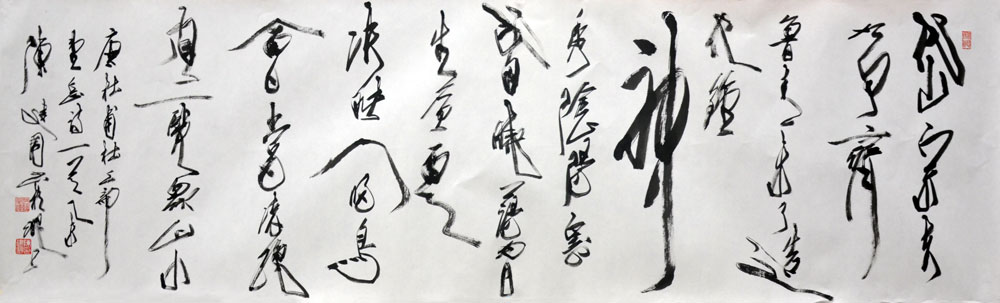 岱宗夫
如何齊
魯青未了造
化鐘
神
秀陰陽割
昏曉蕩胸
生層雲
決眥入歸鳥
會當凌絕
頂一覽眾山小
唐杜甫杜工部
望岳詩一首
陳